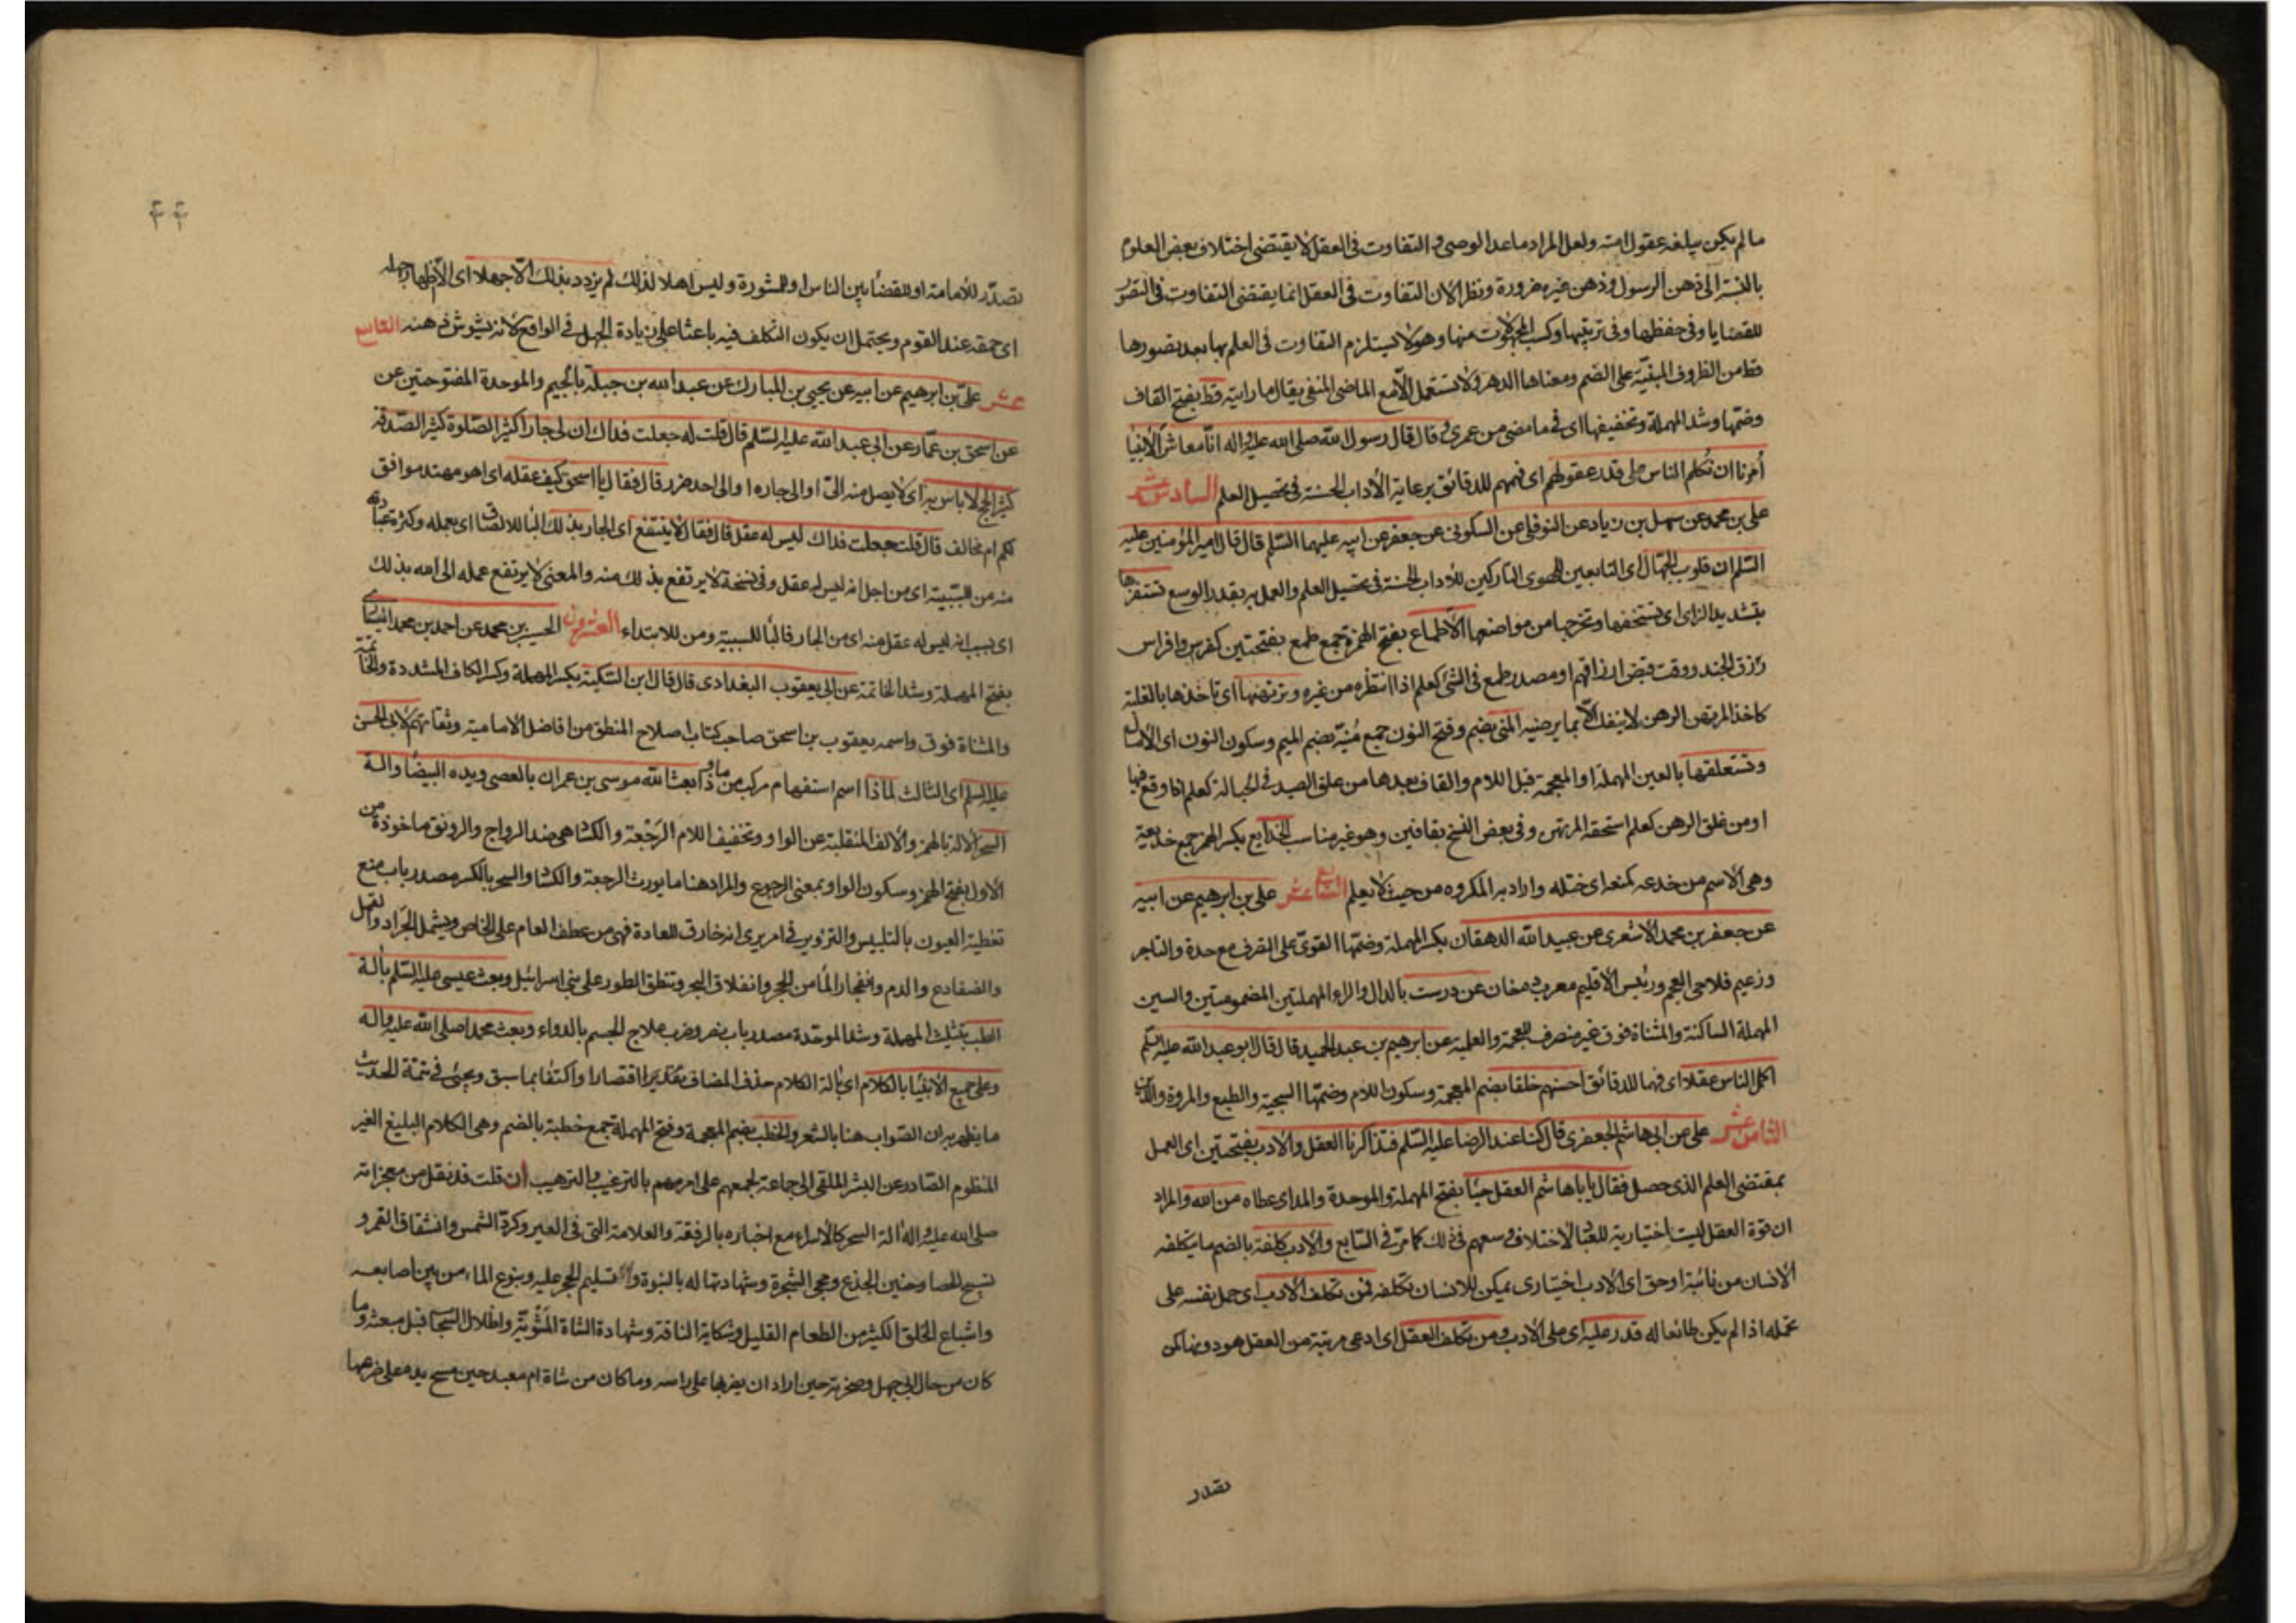 ما لم يكن يبلغه عقول امته ولعل المراد ماعدا الوصى و التفاوت فى العقل لا يقتضى اختلاف بعض العلوم
بالنسبة الى ذهن الرسول و ذهن غيره ضرورة ونظرا لان التفاوت فى العقل انما يقتضى التفاوت فى التصور
للقضايا وفى حفظها وفى ترتيبها وكسب المجهولات منها وهو لا يستلزم التفاوت فى العلم بها بعد تصورها
قط من الظروف المبنيّة على الضم ومعناها الدهر ولا تستعمل الّا مع الماضى المنفى يقال ما رايته قط بفتح القاف
وضمّها وشد المهملة وتخفيفها اى فى ما مضى من عمرى و قال قال رسول الله صلى الله عليه واله انّا معاشر الانبيا
اُمرنا ان نُكلم الناس على قدر عقولهم اى فهمهم للدقائق برعاية الآداب الحسنة فى تحصيل العلم السادس عشر
على بن محمد عن سهل بن زياد عن النوفلى عن السكونى عن جعفر عن ابيه عليهما السّلم قال قال امير المؤمنين عليه
السّلم ان قلوب الجهّال اى التابعين للهوى التاركين للآداب الحسنة فى تحصيل العلم والعمل به بقدر الوسع تستفزها
بتشديد الزاى اى تستخفها وتخرجها من مواضعها الاطماع بفتح الهمزة جمع طمع بفتحتين كفرس وافراس
رزق الجند ووقت قبض ارزاقهم او مصدر طمع فى الشئ كعلم اذا انتظره من غيره وترتهنها اى تاخذها بالغلبة
كاخذ المرتهن الرهن لا ينفك الّا بما يرضيه المنى بضم وفتح النون جمع مُنيّة بضم الميم وسكون النون اى الآمال
وتستعلقها بالعين المهملة او المعجمة قبل اللام والقاف بعدها من علق الصيد فى الحبالة كعلم اذا وقع فيها
او من غلق الرهن كعلم استحقه المرتهن وفى بعض النسخ بقافين وهو غير مناسب الخدايع بكسر الهمز جمع خديعة
وهى الاسم من خدعه كمنعه اى ختله واراد به المكروه من حيث لا يعلم السابع عشر على بن ابرهيم عن ابيه
عن جعفر بن محمد الاشعرى عن عبيد الله الدهقان بكسر المهملة وضمّها القوىّ على التصرف مع حدة والتاجر
وزعيم فلاحى العجم ورئيس الاقليم معرب دهخان عن درست بالدال والراء المهملتين المضمومتين والسين
المهملة الساكنة والمثناة فوق غير منصرف للعجمة والعلمية عن ابرهيم بن عبد الحميد قال قال ابو عبد الله عليه السّلم
اكمل الناس عقلا اى فهما للدقائق احسنهم خلقا بضم المعجمة وسكون اللام وضمّها السجية والطبع والمروة والدّين
الثامن عشر على عن ابى هاشم الجعفرى قال كنا عند الرضا عليه السّلم فتذاكرنا العقل والادب بفتحتين اى العمل
بمقتضى العلم الذى حصل فقال ياباهاشم العقل حِبا بفتح المهملة والموحدة والمد اى عطاء من الله والمراد
ان قوة العقل ليست اختيارية للعباد لاختلاف وسعهم فى ذلك كما مرّ فى السّابع والادب كلفة بالضم ما يتكلفه
الانسان من نائبة او حق اى الادب اختيارى يمكن للانسان تكلفه فمن تكلف الادب اى حمل نفسه على
تحمله اذا لم يكن طائعا له قدر عليه اى على الادب ومن تكلف العقل اى ادعى مرتبة من العقل هو دونها كمن
تصدّر
تصدّر للأمامة او للقضاء بين الناس او للمشورة وليس اهلا لذلك لم يزدد بذلك الّا جهلا اى الّا ظهار جهله
اى حمقه عند القوم ويحتمل ان يكون التكلف فيه باعثا على زيادة الجهل فى الواقع لانه يشوش ذهنه التاسع
عشر علىّ بن ابرهيم عن ابيه عن يحيى بن المبارك عن عبد الله بن جبلة بالجيم والموحدة المفتوحتين عن
عن اسحق بن عمّار عن ابى عبد الله عليه السّلم قال قلت له جعلت فداك ان لى جارا كثير الصّلوة كثير الصّدقة
كثير الحج لا باس به اى لا يصل منه الىّ او الى جاره او الى احد ضرر قال فقال يا اسحق كيف عقله اى اهو مهتد موافق
لكم ام مخالف قال قلت جعلت فداك ليس له عقل قال فقال لا ينتفع اى الجار بذلك الباء للالصاق اى بعمله وكثرة عبادته
منه من للسببية اى من اجل انه ليس له عقل وفى نسخة لا يرتفع بذلك منه والمعنى لا يرتفع عمله الى الله بذلك
اى بسبب انه ليس له عقل منه اى من الجار فالبا للسببية ومن للابتداء العشرون الحسين بن محمد عن احمد بن محمد السّيارى
بفتح المهملة وشد الخاتمة عن ابى يعقوب البغدادى قال قال ابن السّكيت بكسر المهملة وكسر الكاف المشددة والخاتمة
والمثناة فوق واسمه يعقوب بن اسحق صاحب كتاب اصلاح المنطق من افاضل الامامية وثقاتهم لابى الحسن
عليه السلم اى الثالث لماذا اسم استفهام مركب من ما و ذا بعث الله موسى بن عمران بالعصى ويده البيضا وآلة
السحر الآلة بالهمز والالف المنقلبة عن الواو وتخفيف اللام الرَّجْعة والكساد هى ضد الرواج والرونق ماخوذة من
الاول بفتح الهمز وسكون الواو بمعنى الرجوع والمراد هنا ما يورث الرجعة والكساد والسحر بالكسر مصدر باب منع
تغطية العيون بالتلبيس والتزوير فى امر يرى انه خارق للعادة فهى من عطف العام على الخاص ويشمل الجَراد والقمل
والضفادع والدم وانفجار الماء من الحجر وانفلاق البحر ونطق الطور على بنى اسرائيل وبعث عيسى عليه السّلم بآلة
الطب بتثليث المهملة وشد الموحّدة مصدر باب نصر وضرب علاج الجسم بالدواء وبعث محمدا صلى الله عليه واله
وعلى جميع الانبيا بالكلام اى بآلة الكلام حذف المضاف تقديرا اقتصارا واكتفاء بما سبق ويجئ فى تتمّة الحديث
ما يظهر به ان الصّواب هنا بالشعر والخطب بضم المعجمة وفتح المهملة جمع خطبة بالضم وهى الكلام البليغ الغير
المنظوم الصّادر عن البشر الملقى الى جماعة لجمعهم على امر مهم بالترغيب والترهيب ان قلت قد نقل من معجزاته
صلى الله عليه واله آلة السحر كالاسراء مع اخباره بالرفقة والعلامة التى فى العير وكردّ الشمس وانشقاق القمر و
تسبيح الحصا وحنين الجذع ومجئ الشجرة وشهادتها له بالنبوة و تسليم الحجر عليه ونبوع الماء من بين اصابعه
واشباع الخلق الكثير من الطعام القليل وشكاية الناقة وشهادة الشاة المَشْويّة واظلال السحاب قبل مبعثه وما
كان من حال ابى جهل وصخرته حين اراد ان يضربها على راسه وما كان من شاة ام معبد حين مسح يده على ضرعها